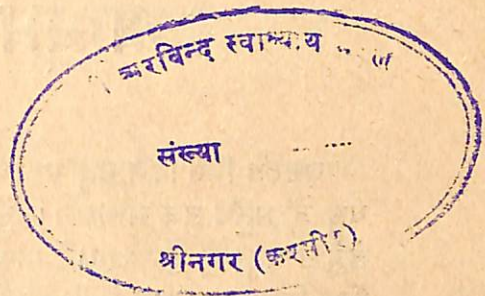 अरविन्द स्वाध्याय
संख्या .......
श्रीनगर (कश्मीर)